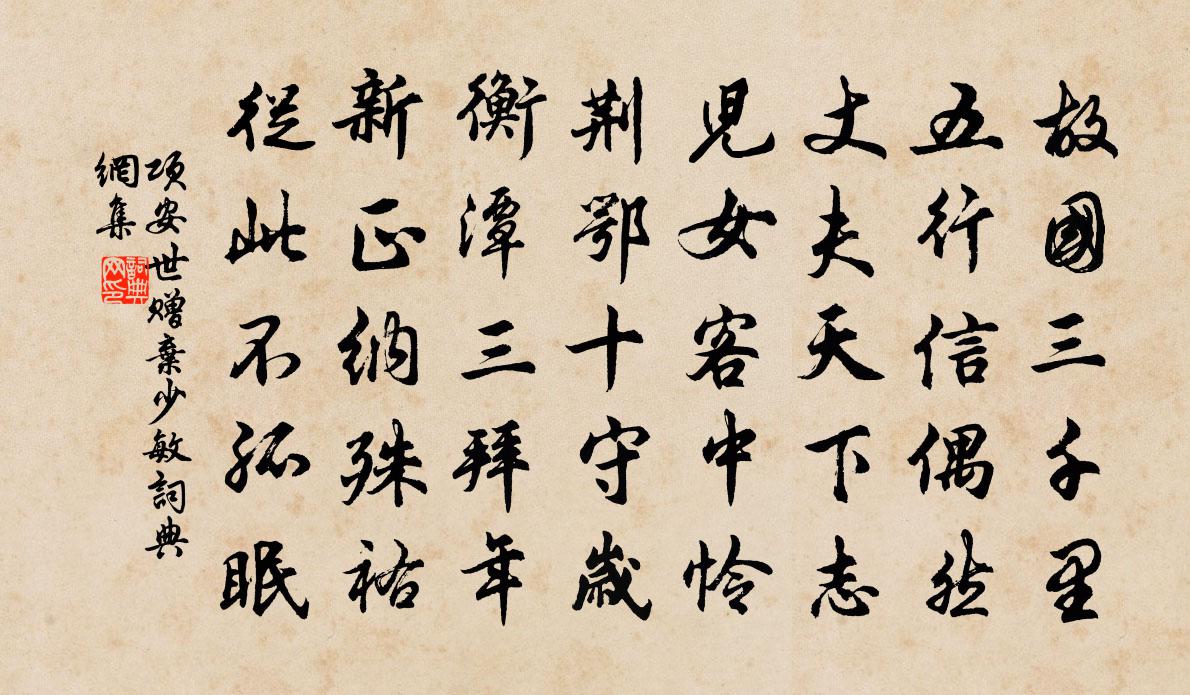 故國三千里
五行信偶然
丈夫天下志
兒女客中怜
荆鄂十守歲
衡潭三拜年
新正納殊祐
從此不孤眠
項安世贈棄少敏詞典
網集
詞典
网印